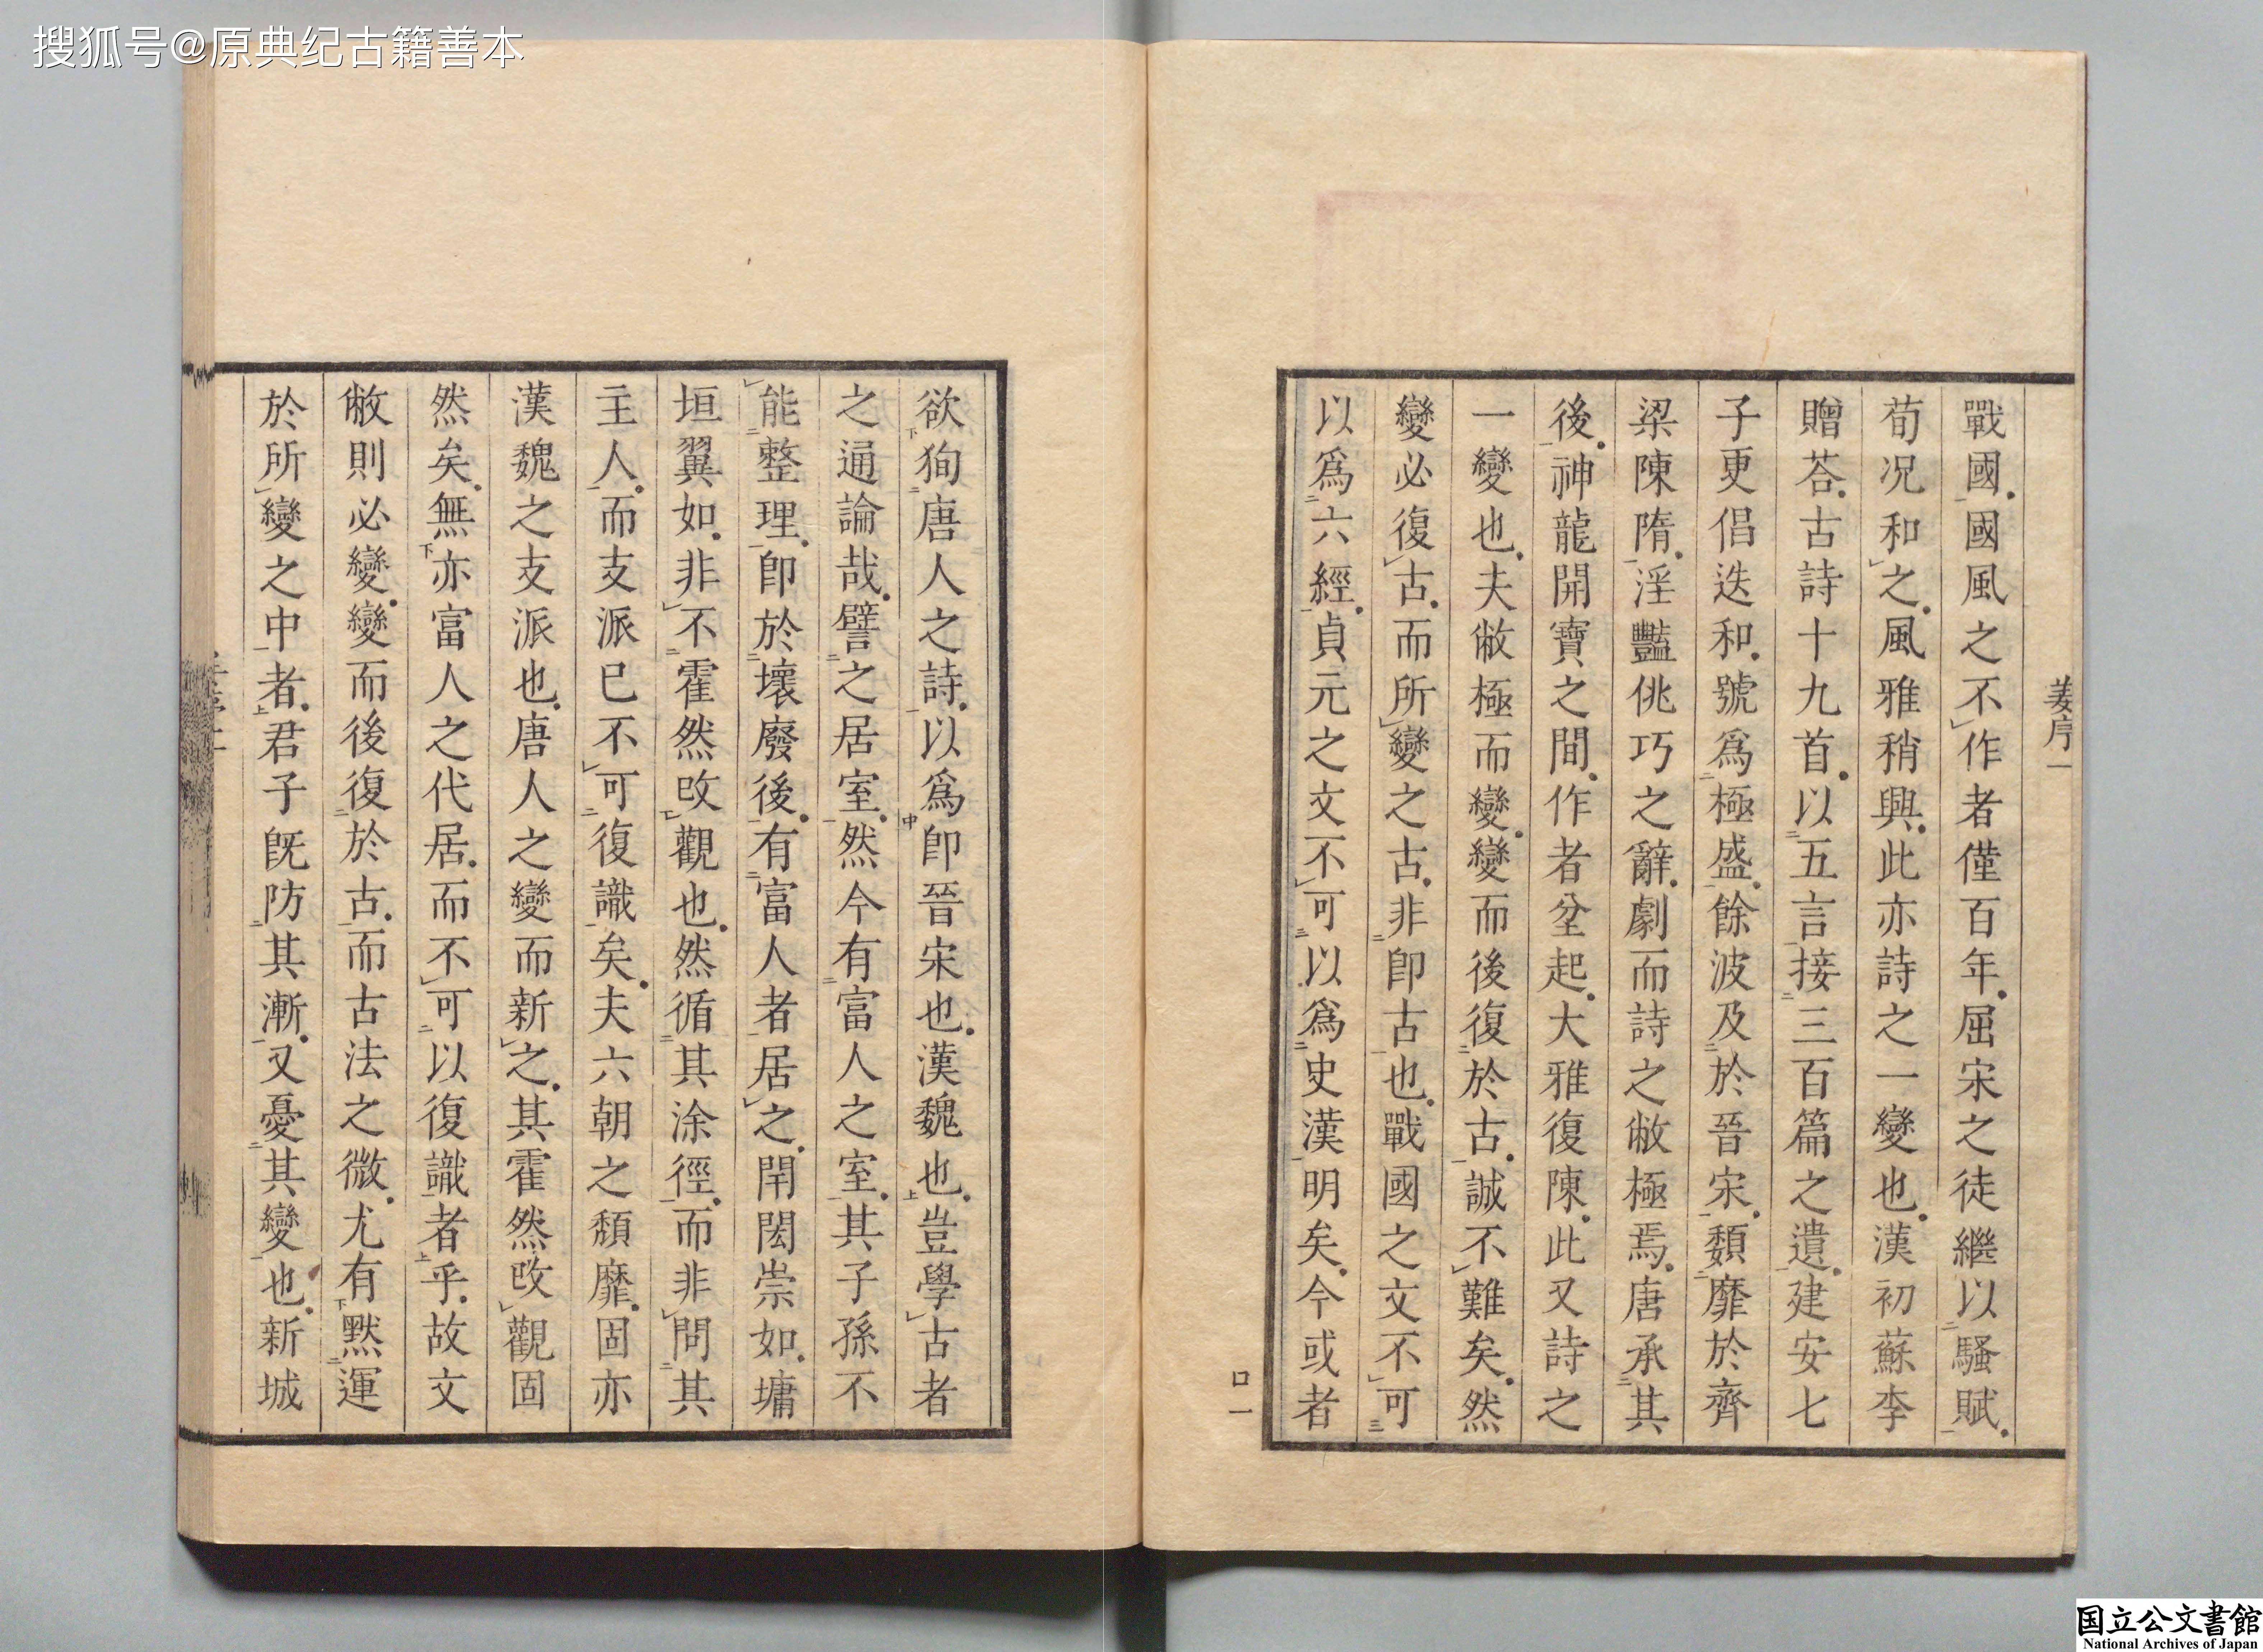 搜狐号@原典纪古籍善本
姜序一
戰國國風之不作者僅百年屈宋之徒繼以騷賦
荀况和之風雅稍興此亦詩之一變也漢初蘇李
贈荅古詩十九首以五言接三百篇之遺建安七
子更倡迭和號爲極盛餘波及於晉宋頽靡於齊
梁陳隋淫豔佻巧之辭劇而詩之敝極焉唐承其
後神龍開寶之間作者坌起大雅復陳此又詩之
一變也夫敝極而變變而後復於古誠不難矣然
變必復古而所變之古非卽古也戰國之文不可
以爲六經貞元之文不可以爲史漢明矣今或者
口一
欲狥唐人之詩以爲卽晉宋也漢魏也豈學古者
之通論哉譬之居室然今有富人之室其子孫不
能整理卽於壞廢後有富人者居之閈閎崇如墉
垣翼如非不霍然改觀也然循其涂徑而非問其
主人而支派已不可復識矣夫六朝之頽靡固亦
漢魏之支派也唐人之變而新之其霍然改觀固
然矣無亦富人之代居而不可以復識者乎故文
敝則必變變而後復於古而古法之微尤有默運
於所變之中者君子旣防其漸又憂其變也新城
国立公文書館
National Archives of Japan